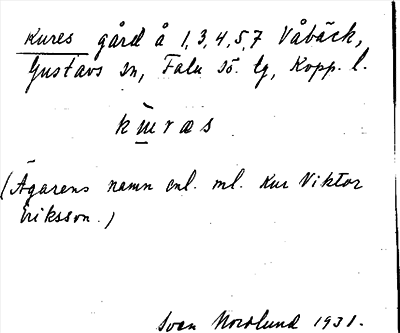 Kures gård å 1,3,4,5,7 Våbäck,
Gustavs sn, Falu sö. tg, Kopp. l.
kɯ̀ras
(Ägarens namn enl. ml. Kur Viktor
Eriksson.)
Ivan Nordlund 1931.